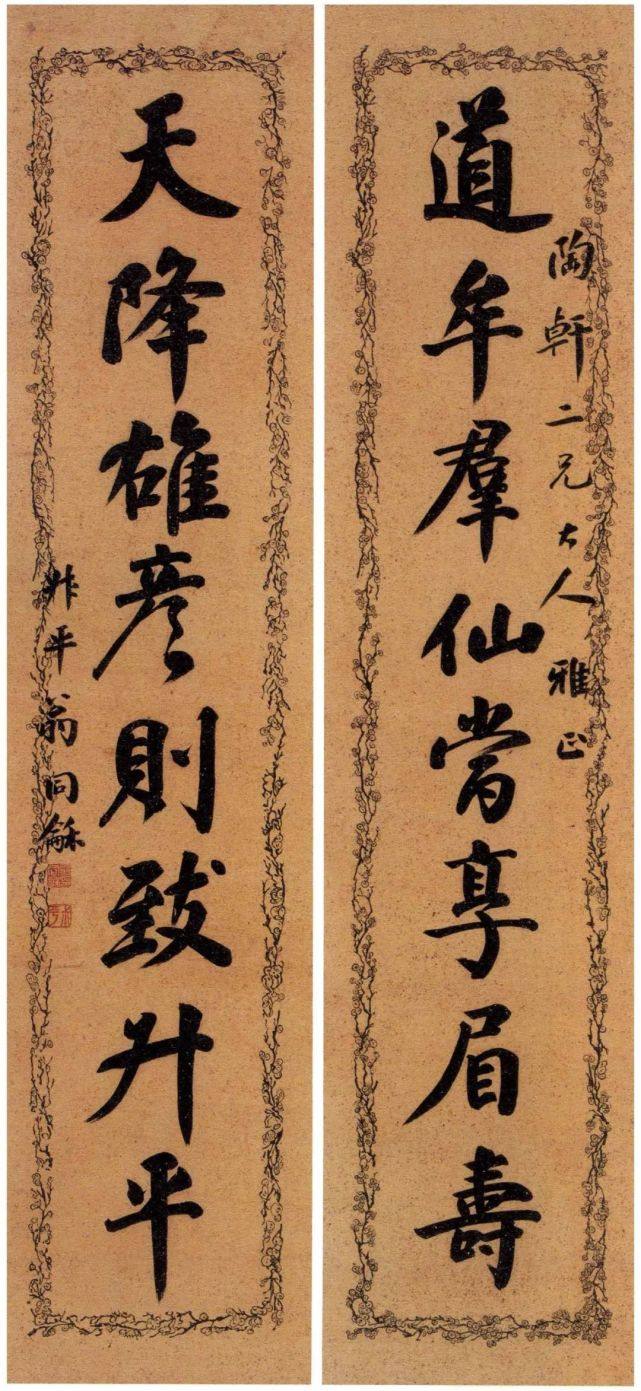 道牟羣仙常享眉壽
陶軒二兄大人雅正
天降雄彥則致升平
尗平翁同龢